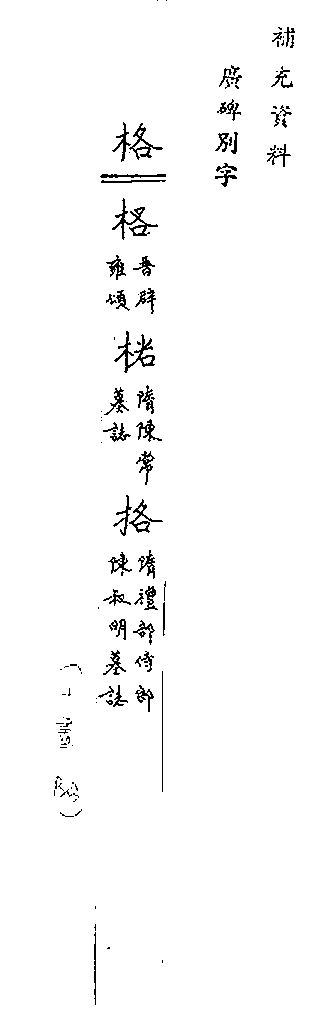 補充資料
廣碑別字
格
格 晉辟雍頌
楮 隋陳常墓誌
挌 隋禮部侍郎陳叔明墓誌